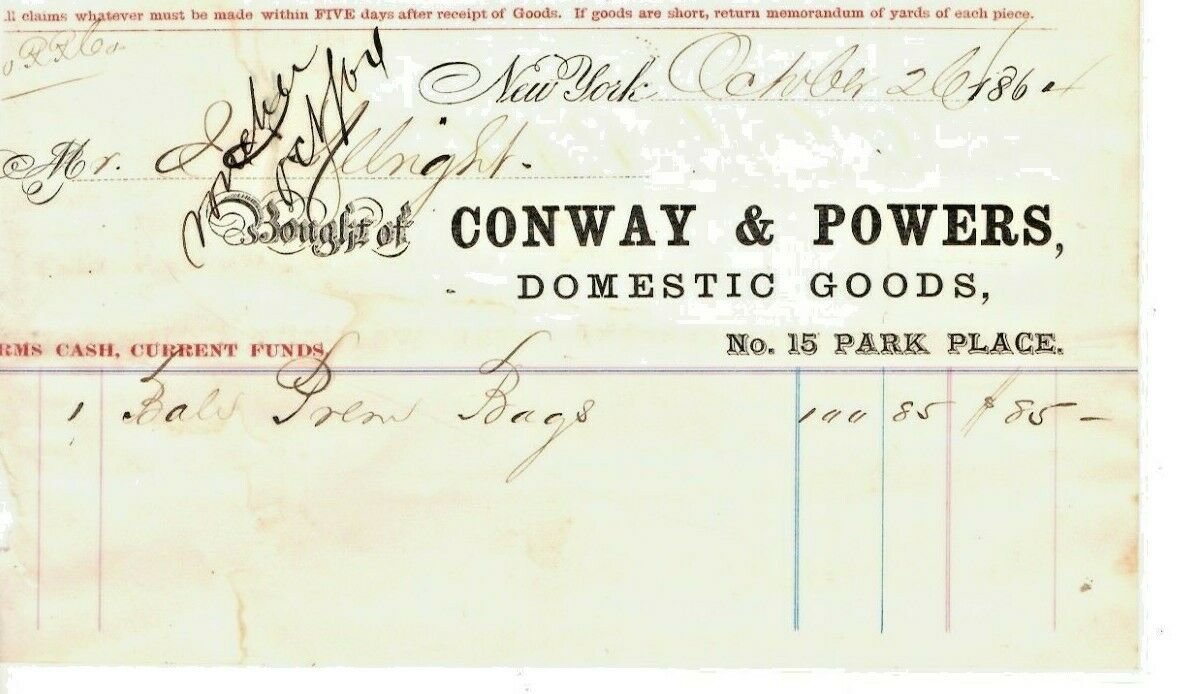 ll claims whatever must be made within FIVE days after receipt of Goods. If goods are short, return memorandum of yards of each piece.
RR Co
New York October 26 1864
Mr. Albright.
Bought of CONWAY & POWERS,
DOMESTIC GOODS,
RMS CASH, CURRENT FUNDS No. 15 PARK PLACE.
1 Bale Prem Bags 100 85 $85 –